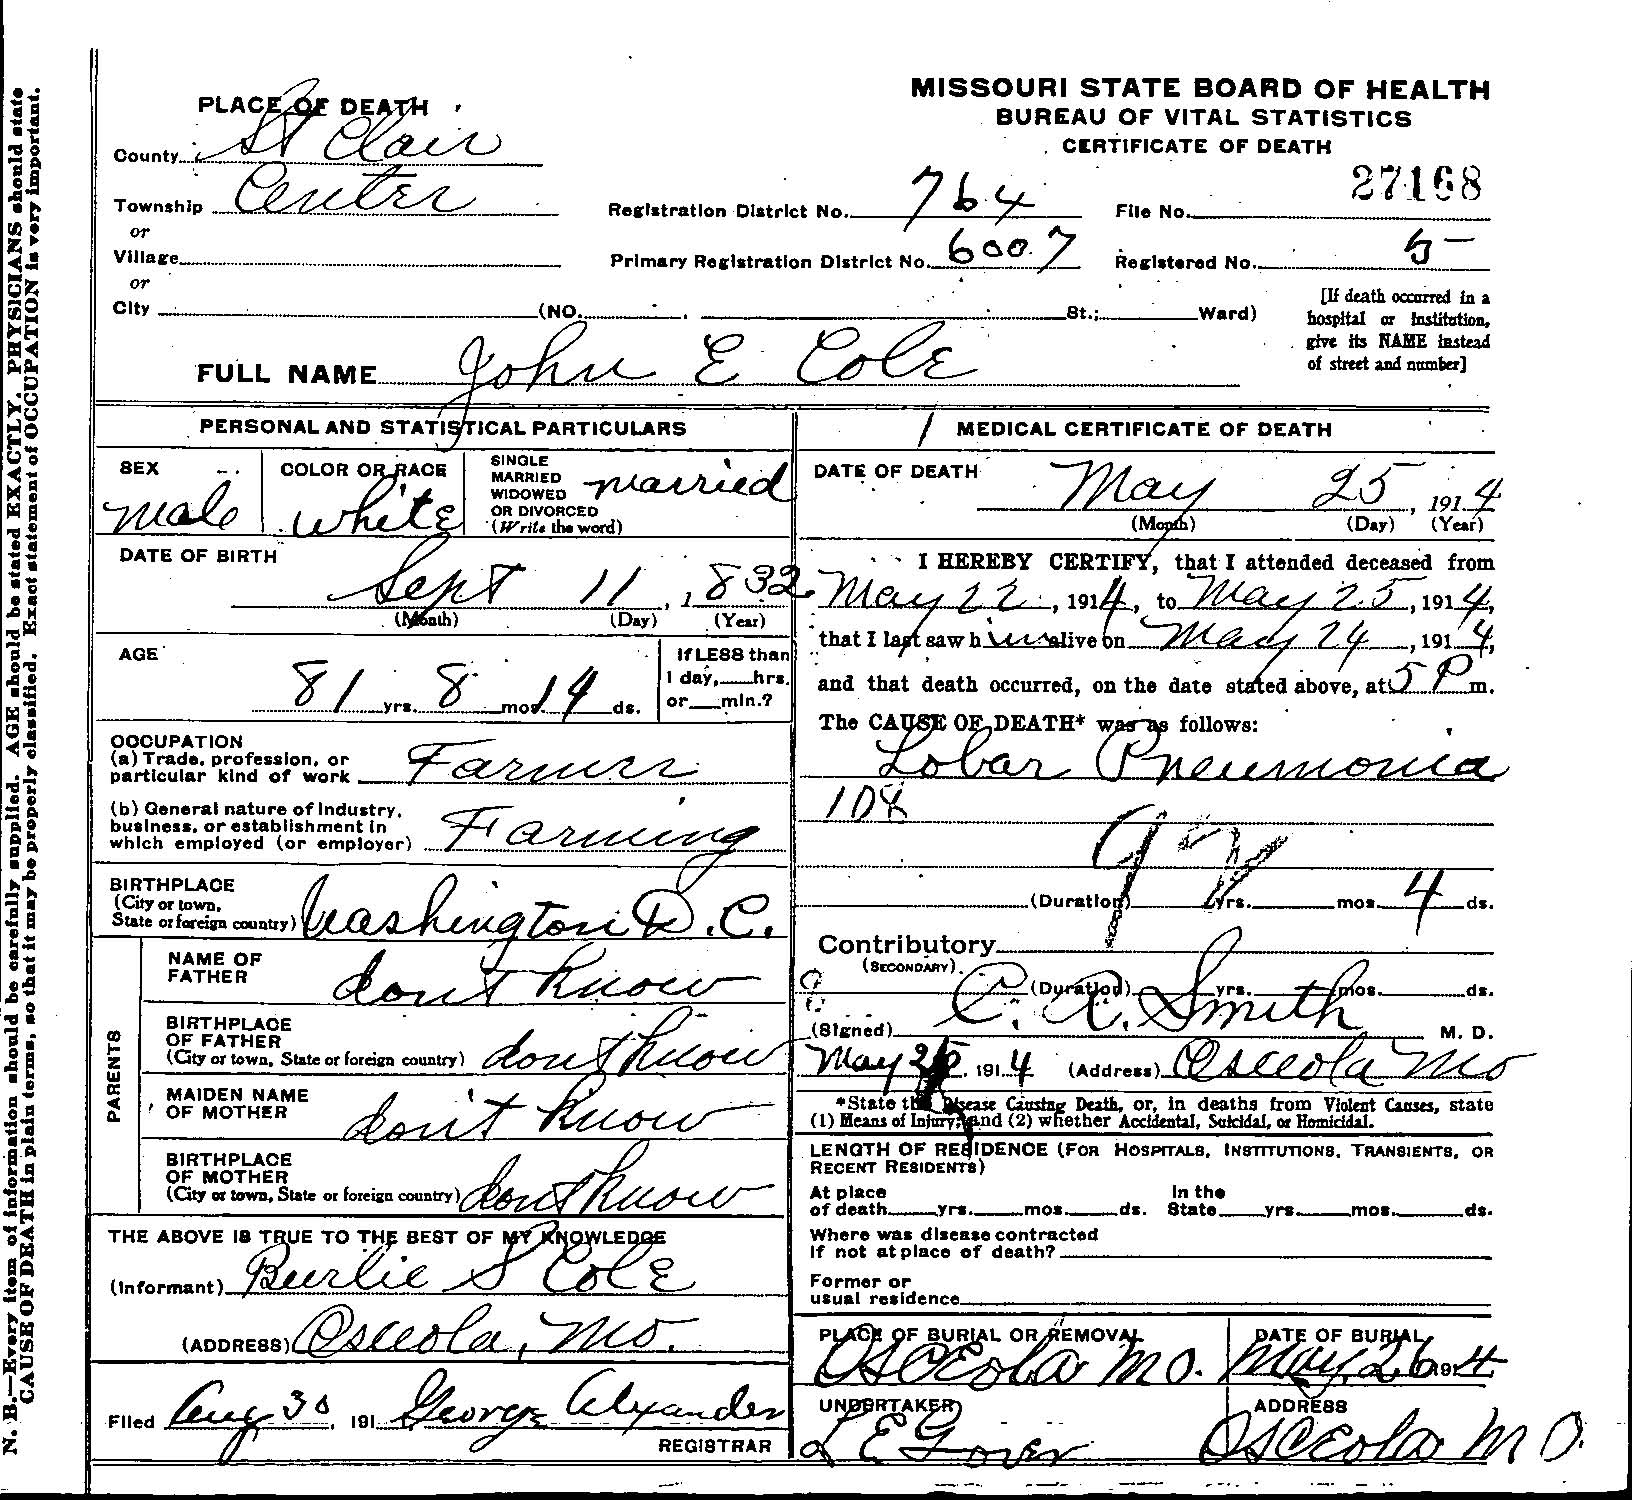 N. B.—Every item of information should be carefully supplied. AGE should be stated EXACTLY. PHYSICIANS should state
CAUSE OF DEATH in plain terms, so that it may be properly classified. Exact statement of OCCUPATION is very important.
MISSOURI STATE BOARD OF HEALTH
BUREAU OF VITAL STATISTICS
CERTIFICATE OF DEATH
PLACE OF DEATH
County St Clair
Township Center
or
Village
or
City (NO. St.; Ward)
Registration District No. 764
File No. 27168
Primary Registration District No. 6007
Registered No. 5
[If death occurred in a
hospital or institution,
give its NAME instead
of street and number]
FULL NAME John E Cole
PERSONAL AND STATISTICAL PARTICULARS
SEX
male
COLOR OR RACE
white
SINGLE
MARRIED
WIDOWED
OR DIVORCED
(Write the word)
married
DATE OF BIRTH
Sept 11, 1832
(Month) (Day) (Year)
AGE
81 yrs. 8 mos. 14 ds.
If LESS than
1 day, hrs.
or min.?
OCCUPATION
(a) Trade, profession, or
particular kind of work Farmer
(b) General nature of industry,
business, or establishment in
which employed (or employer) Farming
BIRTHPLACE
(City or town,
State or foreign country) Washington D.C.
PARENTS
NAME OF
FATHER dont know
BIRTHPLACE
OF FATHER
(City or town, State or foreign country) dont know
MAIDEN NAME
OF MOTHER don't know
BIRTHPLACE
OF MOTHER
(City or town, State or foreign country) dont know
THE ABOVE IS TRUE TO THE BEST OF MY KNOWLEDGE
(Informant) Burlie S Cole
(ADDRESS) Osceola, Mo.
Filed Aug 30, 191 George Alexander
REGISTRAR
1 MEDICAL CERTIFICATE OF DEATH
DATE OF DEATH May 25, 1914
(Month) (Day) (Year)
I HEREBY CERTIFY, that I attended deceased from
May 22, 1914, to May 25, 1914,
that I last saw him alive on May 24, 1914,
and that death occurred, on the date stated above, at 5 P m.
The CAUSE OF DEATH* was as follows:
Lobar Pneumonia
108
(Duration) yrs. mos. 4 ds.
Contributory
(SECONDARY)
(Duration) yrs. mos. ds.
(Signed) C. A. Smith M. D.
May 25, 1914 (Address) Osceola Mo
*State the Disease Causing Death, or, in deaths from Violent Causes, state
(1) Means of Injury; and (2) whether Accidental, Suicidal, or Homicidal.
LENGTH OF RESIDENCE (FOR HOSPITALS, INSTITUTIONS, TRANSIENTS, OR
RECENT RESIDENTS)
At place
of death yrs. mos. ds.
In the
State yrs. mos. ds.
Where was disease contracted
if not at place of death?
Former or
usual residence
PLACE OF BURIAL OR REMOVAL
Osceola Mo.
DATE OF BURIAL
May 26 1914
UNDERTAKER
L E Gover
ADDRESS
Osceola Mo.